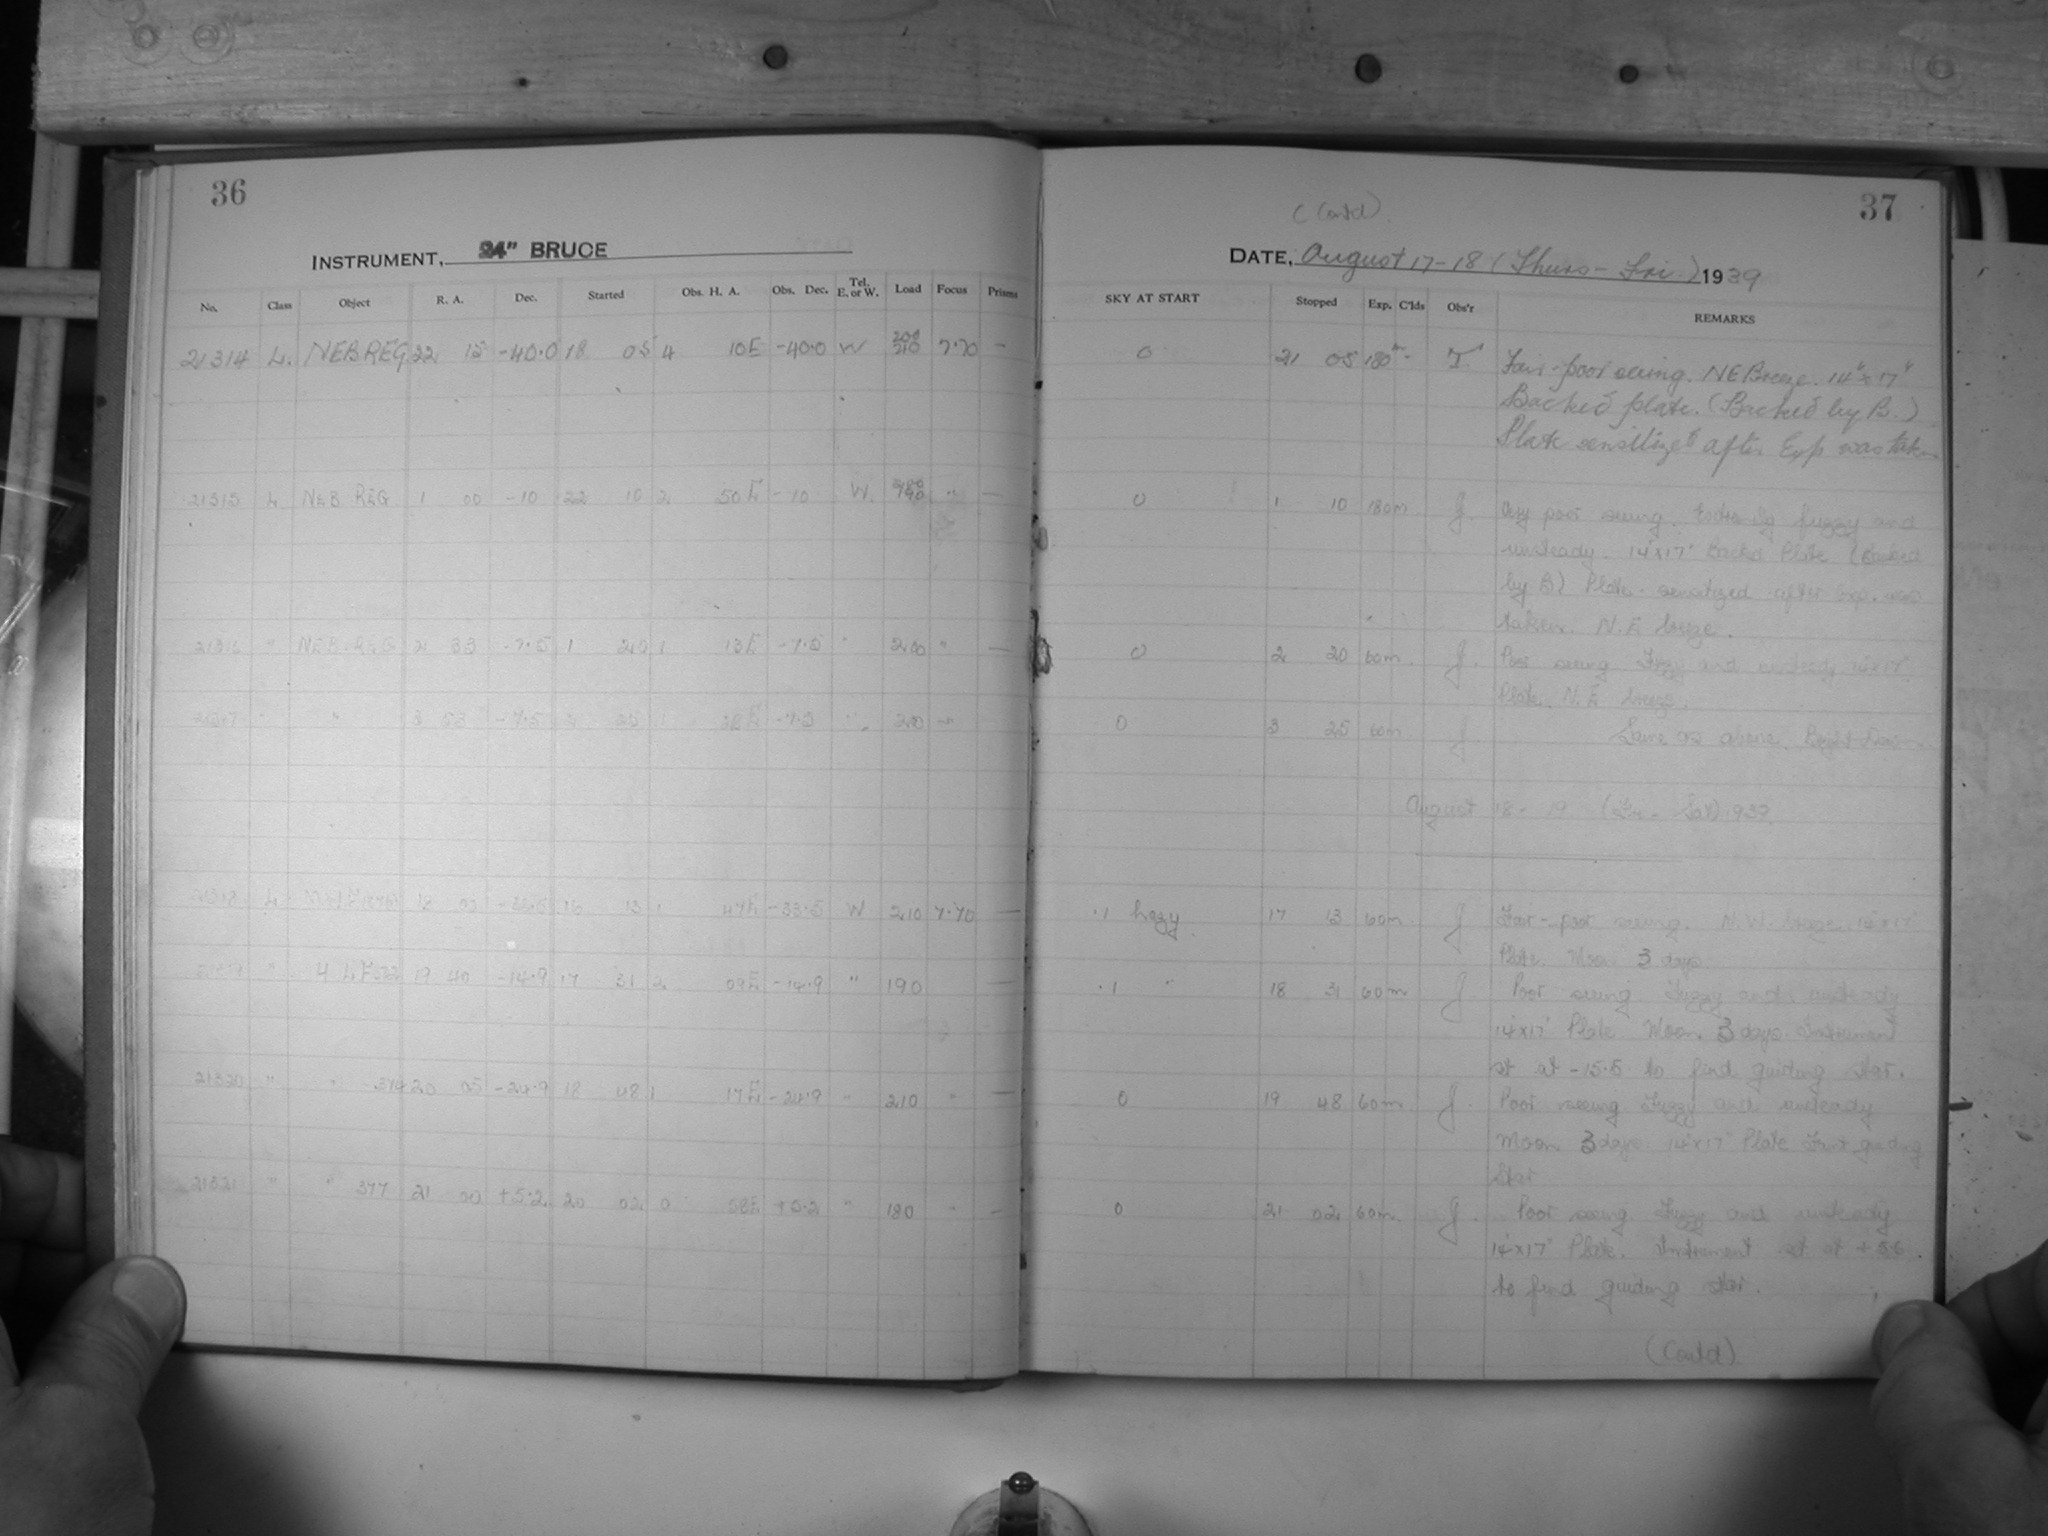 36
INSTRUMENT, 24" BRUCE
No. Class Object R. A. Dec. Started Obs. H. A. Obs. Dec. Tel. E. or W. Load Focus Prisms
21314 L. NEB REG 22 15 -40.0 18 05 4 10E -40.0 W 200 210 7.70 —
21315 L NEB REG 1 00 -10 22 10 2 50E -10 W. 190 " —
21316 " NEB. REG 2 33 -7.5 1 20 1 13E -7.5 " 200 " —
" " 3 53 -7.5 2 25 1 28E -7.5 " 200 "
L 18 00 -33.5 16 13 1 47E -33.5 W 210 7.70 —
" 19 40 -14.9 17 31 2 09E -14.9 " 190 —
21320 " " 374 20 05 -24.9 18 48 1 17E -24.9 " 210 " —
21321 " " 377 21 00 +5.2 20 02 0 58E +5.2 " 180 " —
37
(Contd)
DATE, August 17-18 (Thurs - Fri.) 1939
SKY AT START Stopped Exp. C'lds Obs'r REMARKS
0 21 05 180m - T. Fair - poor seeing. NE Breeze. 14" x 17"
Backed plate. (Backed by B.)
Plate sensitized after Exp was taken
0 1 10 180m J. Very poor seeing. Extremely fuzzy and
unsteady. 14"x17" Backed Plate (Backed
by B) Plate sensitized after exp. was
taken. N.E breeze.
0 2 20 60m. J. Poor seeing Fuzzy and unsteady 14"x17"
Plate. N.E breeze.
0 3 25 60m. J Same as above.
August 18 - 19 (Fri - Sat) 1939.
.1 hazy 17 13 60m J Fair - poor seeing. N.W. breeze. 14"x17"
Plate. Moon 3 days.
.1 " 18 31 60m J Poor seeing Fuzzy and unsteady
14"x17" Plate Moon 3 days Instrument
set at -15.5 to find guiding star.
0 19 48 60m J. Poor seeing Fuzzy and unsteady
Moon 3 days 14"x17" Plate Faint guiding
star
0 21 02 60m J. Poor seeing Fuzzy and unsteady
14"x17" Plate. Instrument set at
to find guiding star.
(Contd)